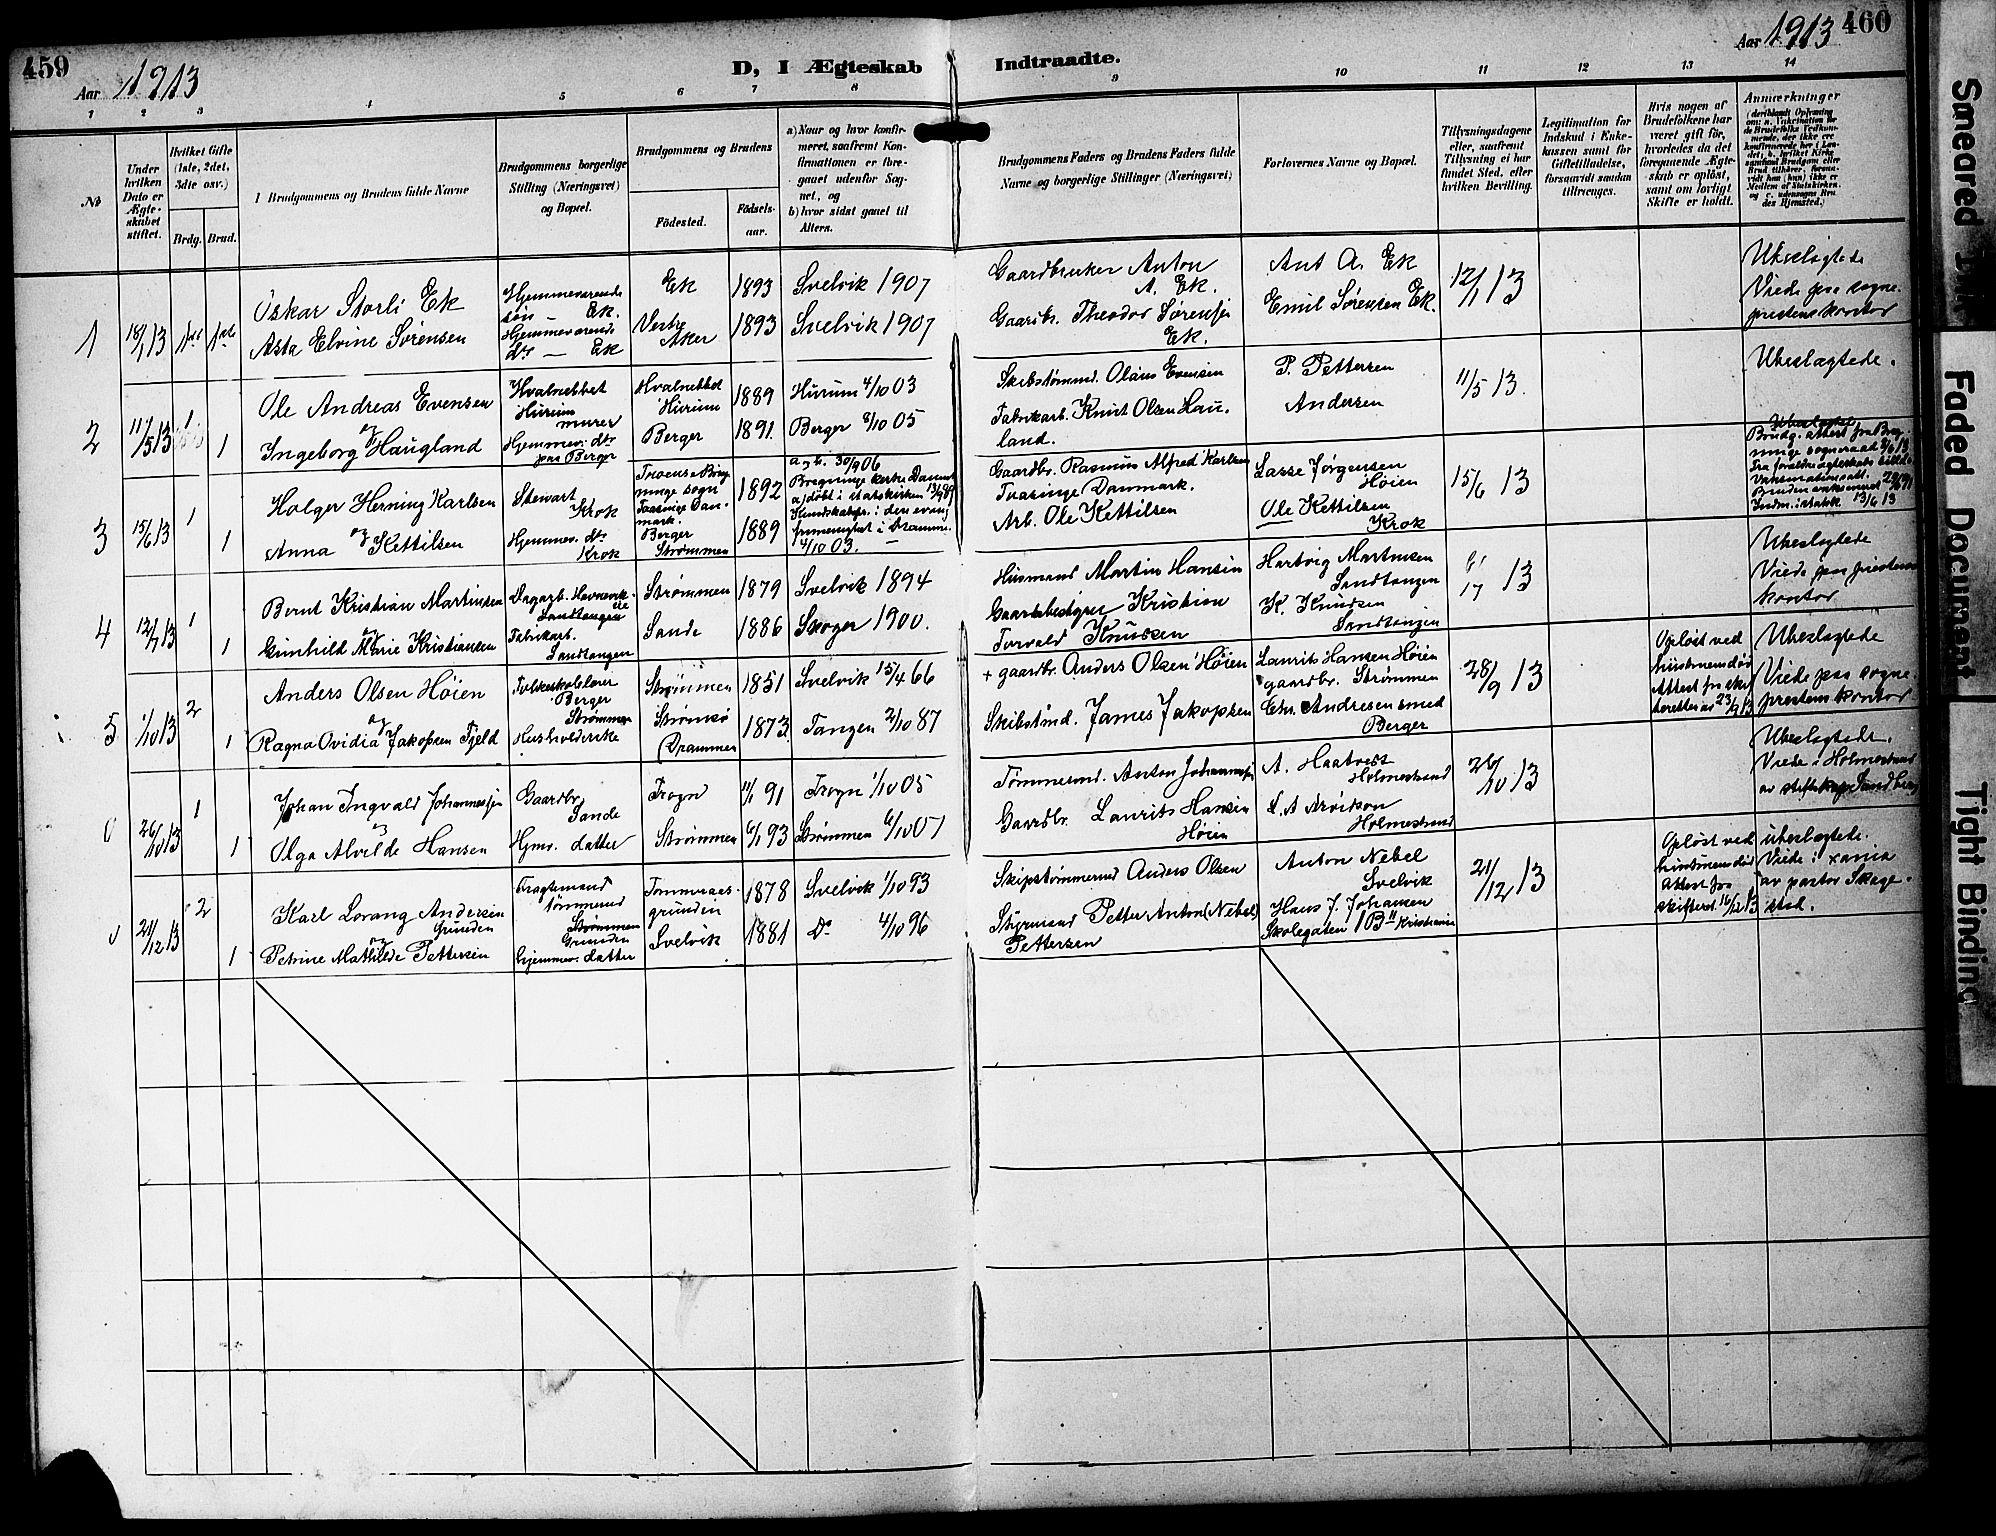 459
Aar 1913
D, I Ægteskab Indtraadte.
Aar 1913 460
1 2 3 4 5 6 7 8 9 10 11 12 13 14
No
Under hvilken Dato er Ægteskabet stiftet.
Hvilket Gifte (1ste, 2det, 3die osv.)
Brdg. Brud.
Brudgommens og Brudens fulde Navne
Brudgommens borgerlige Stilling (Næringsvei) og Bopæl.
Brudgommens og Brudens
Födested.
Födsels-aar.
a) Naar og hvor konfirmeret, saafremt Konfirmationen er foregaaet udenfor Sognet, og
b) hvor sidst gaaet til Alters.
Brudgommens Faders og Brudens Faders fulde Navne og borgerlige Stillinger (Næringsvei)
Forlovernes Navne og Bopæl.
Tillysningsdagene eller, saafremt Tillysning ei har fundet Sted, efter hvilken Bevilling.
Legitimation for Indskud i Enkekassen samt for Giftetilladelse, forsaavidt saadan tiltrænges.
Hvis nogen af Brudefolkene har været gift för, hvorledes da det foregaaende Ægteskab er oplöst, samt om lovligt Skifte er holdt.
Anmærkninger
1
18/1 13
1ste 1ste
Oskar Storli Ek
Asta Elvine Sørensen
Hjemmeværende
søn — Ek.
Hjemmeværende
dtr — Ek
Ek
Vestre
Aker
1893
1893
Svelvik 1907
Svelvik 1907
Gaardbruker Anton
A. Ek.
Gaardbr. Theodor Sørensen
Ek.
Ant A. Ek
Emil Sørensen Ek.
12/1 13
Ubeslægtede
Viede paa sogne-
prestens kontor
2
11/5 13
1
1
Ole Andreas Evensen
og
Ingeborg Haugland
Hvalnebbet
Hurum
murer
Hjemmev. dtr
paa Berger
Hvalnebbet
Hurum
Berger
1889
1891.
Hurum 4/10 03
Berger 8/10 05
Skibstømmd. Olaus Evensen
Fabrikarb. Knut Olsen Hau-
land.
P. Pettersen
Andersen
11/5 13.
Ubeslægtede.
3
15/6 13
1
1
Holger Herning Karlsen
og
Anna Kettilsen
Stewart
Krok
Hjemmev. dtr
Krok
mark.
Berger
Strømmen
1892
1889
4/10 03. —
Gaardbr. Rasmus Alfred Karlsen
Taasinge Danmark.
Arb. Ole Kettilsen
Lasse Jørgensen
Høien
Ole Kettilsen
Krok
15/6 13
Ubeslægtet
4
13/7 13
1
1
Bernt Kristian Martinsen
og
Gunhild Marie Kristiansen
Sandtangen
Fabrikarb.
Sandtangen
Strømmen
Sande
1879
1886
Svelvik 1894
Skoger 1900.
Husmand Martin Hansen
Gaardbestyrer Kristian
Torvald Knudsen
Hartvig Martinsen
Sandtangen
K. Knudsen
Sandtangen
13
Ubeslægtede
Viede paa prestens
kontor
5
1/10 13
2
1
Anders Olsen Høien
og
Ragna Ovidia Jakopsen Fjeld
Folkeskolelærer
Berger
Strømmen
Husholderske
Strømmen
Strømsø
Drammen
1851
1873.
Svelvik 15/4 66
Tangen 2/10 87
+ gaardbr. Anders Olsen Høien
Skibstmd. James Jakopsen
Laurits Hansen Høien
gaardbr. Strømmen
Chr. Andresen smed
Berger
28/9 13
Opløst ved
hustruens død
Attest fra skif-
teretten av 23/9 13
Ubeslægtede
Viede paa sogne
prestens kontor
6
26/10 13
1
1
Johan Ingvald Johannesen
og
Olga Alvilde Hansen
Gaardbr.
Sande
Hjmv. datter
Frogn
Strømmen
11/1 91
6/1 93
Frogn 1/10 05
Strømmen 6/10 07
Tømmermd. Anton Johannessen
Gaardbr. Laurits Hansen
Høien
A. Haatvest
Holmestrand
L. A Arvidson
Holmestrand
26/10 13
Ubeslægtede.
Viede i Holmestrand
av stiftskap. Sandberg
21/12 13
2
1
Karl Lorang Andersen
Grunden
og
Petrine Mathilde Pettersen
Fragtemand
tømmermd
Strømmen
Grunden
hjemmev. datter
Tømmeraas-
grunden
Svelvik
1878
1881
Svelvik 1/10 93
Do 4/10 96
Skipstømmermd Anders Olsen
Styrmand Petter Anton (Nebel)
Pettersen
Anton Nebel
Svelvik
Hans J. Johansen
Skolegaten 1 B II Kristiania
21/12 13
Opløst ved
hustruens død
attest fra
skifteret. 16/12 13
ubeslægtede.
Viede i Xania
av pastor Skage-
stad.
Smeared Ink
Faded Document
Tight Binding